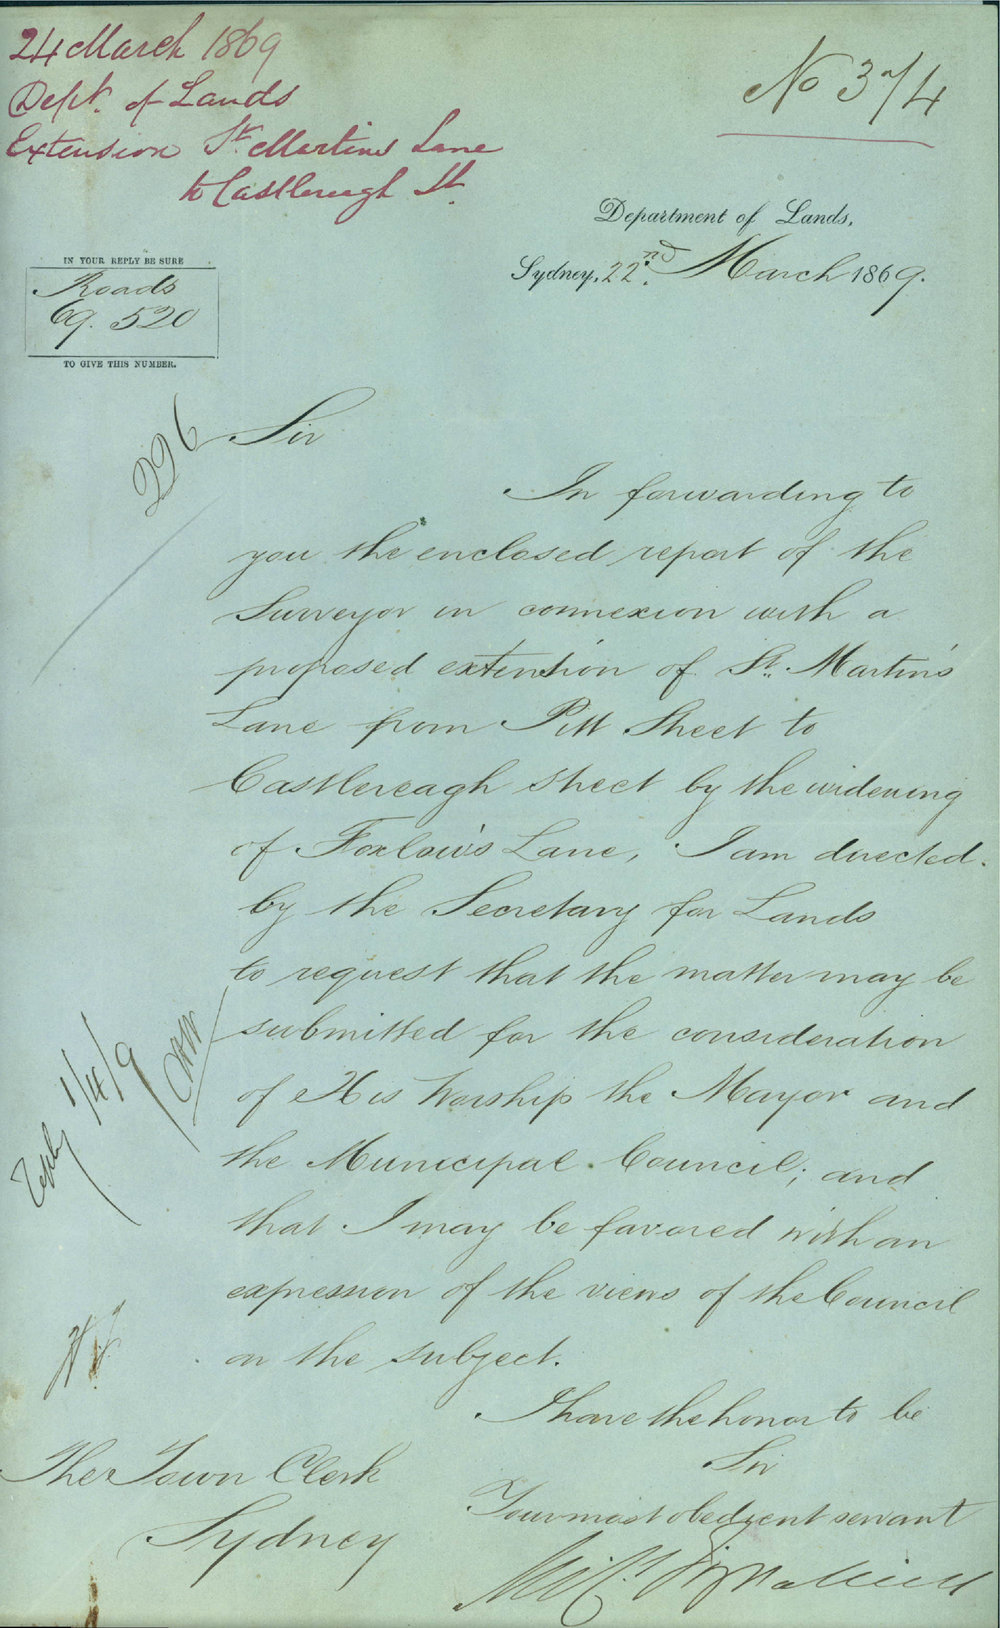 24 March 1869
Dept. of Lands
Extension St. Martins Lane
to Castlereagh St.
No 374
Department of Lands,
Sydney, 22nd. March 1869.
IN YOUR REPLY BE SURE
Roads
69. 520
TO GIVE THIS NUMBER.
226
Sir
In forwarding to
you the enclosed report of the
Surveyor in connexion with a
proposed extension of St. Martin's
Lane from Pitt Street to
Castlereagh Street by the widening
of Foxlow's Lane, I am directed
by the Secretary for Lands
to request that the matter may be
submitted for the consideration
of His Worship the Mayor and
the Municipal Council; and
that I may be favored with an
expression of the views of the Council
on the subject.
Reply 1/4/9
I have the honor to be
Sir
Your most obedient servant
Micl. Fitzpatrick
The Town Clerk
Sydney